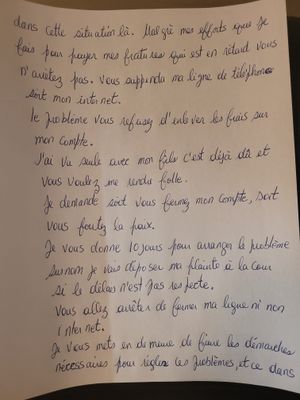 dans cette situation là. Malgré mes efforts que je
fais pour payer mes fratures qui est en retard vous
n'arêtez pas. Vous suppenda ma ligne de téléphone
soit mon internet.
le problème vous refusez d'enlever les frais sur
mon compte.
J'ai vu seule avec mon fils c'est déjà dû et
vous voulez me rendre folle.
Je demande soit vous fermez mon compte, soit
vous foutez la paix.
Je vous donne 10 jours pour arranger le problème
sunom je vais déposer ma plainte à la cour
si le délais n'est pas respecte.
Vous allez arrêter de fermer ma ligne ni mon
internet.
Je vous mets en demeure de faire les démarches
nécessaires pour régler les problèmes, et ce dans